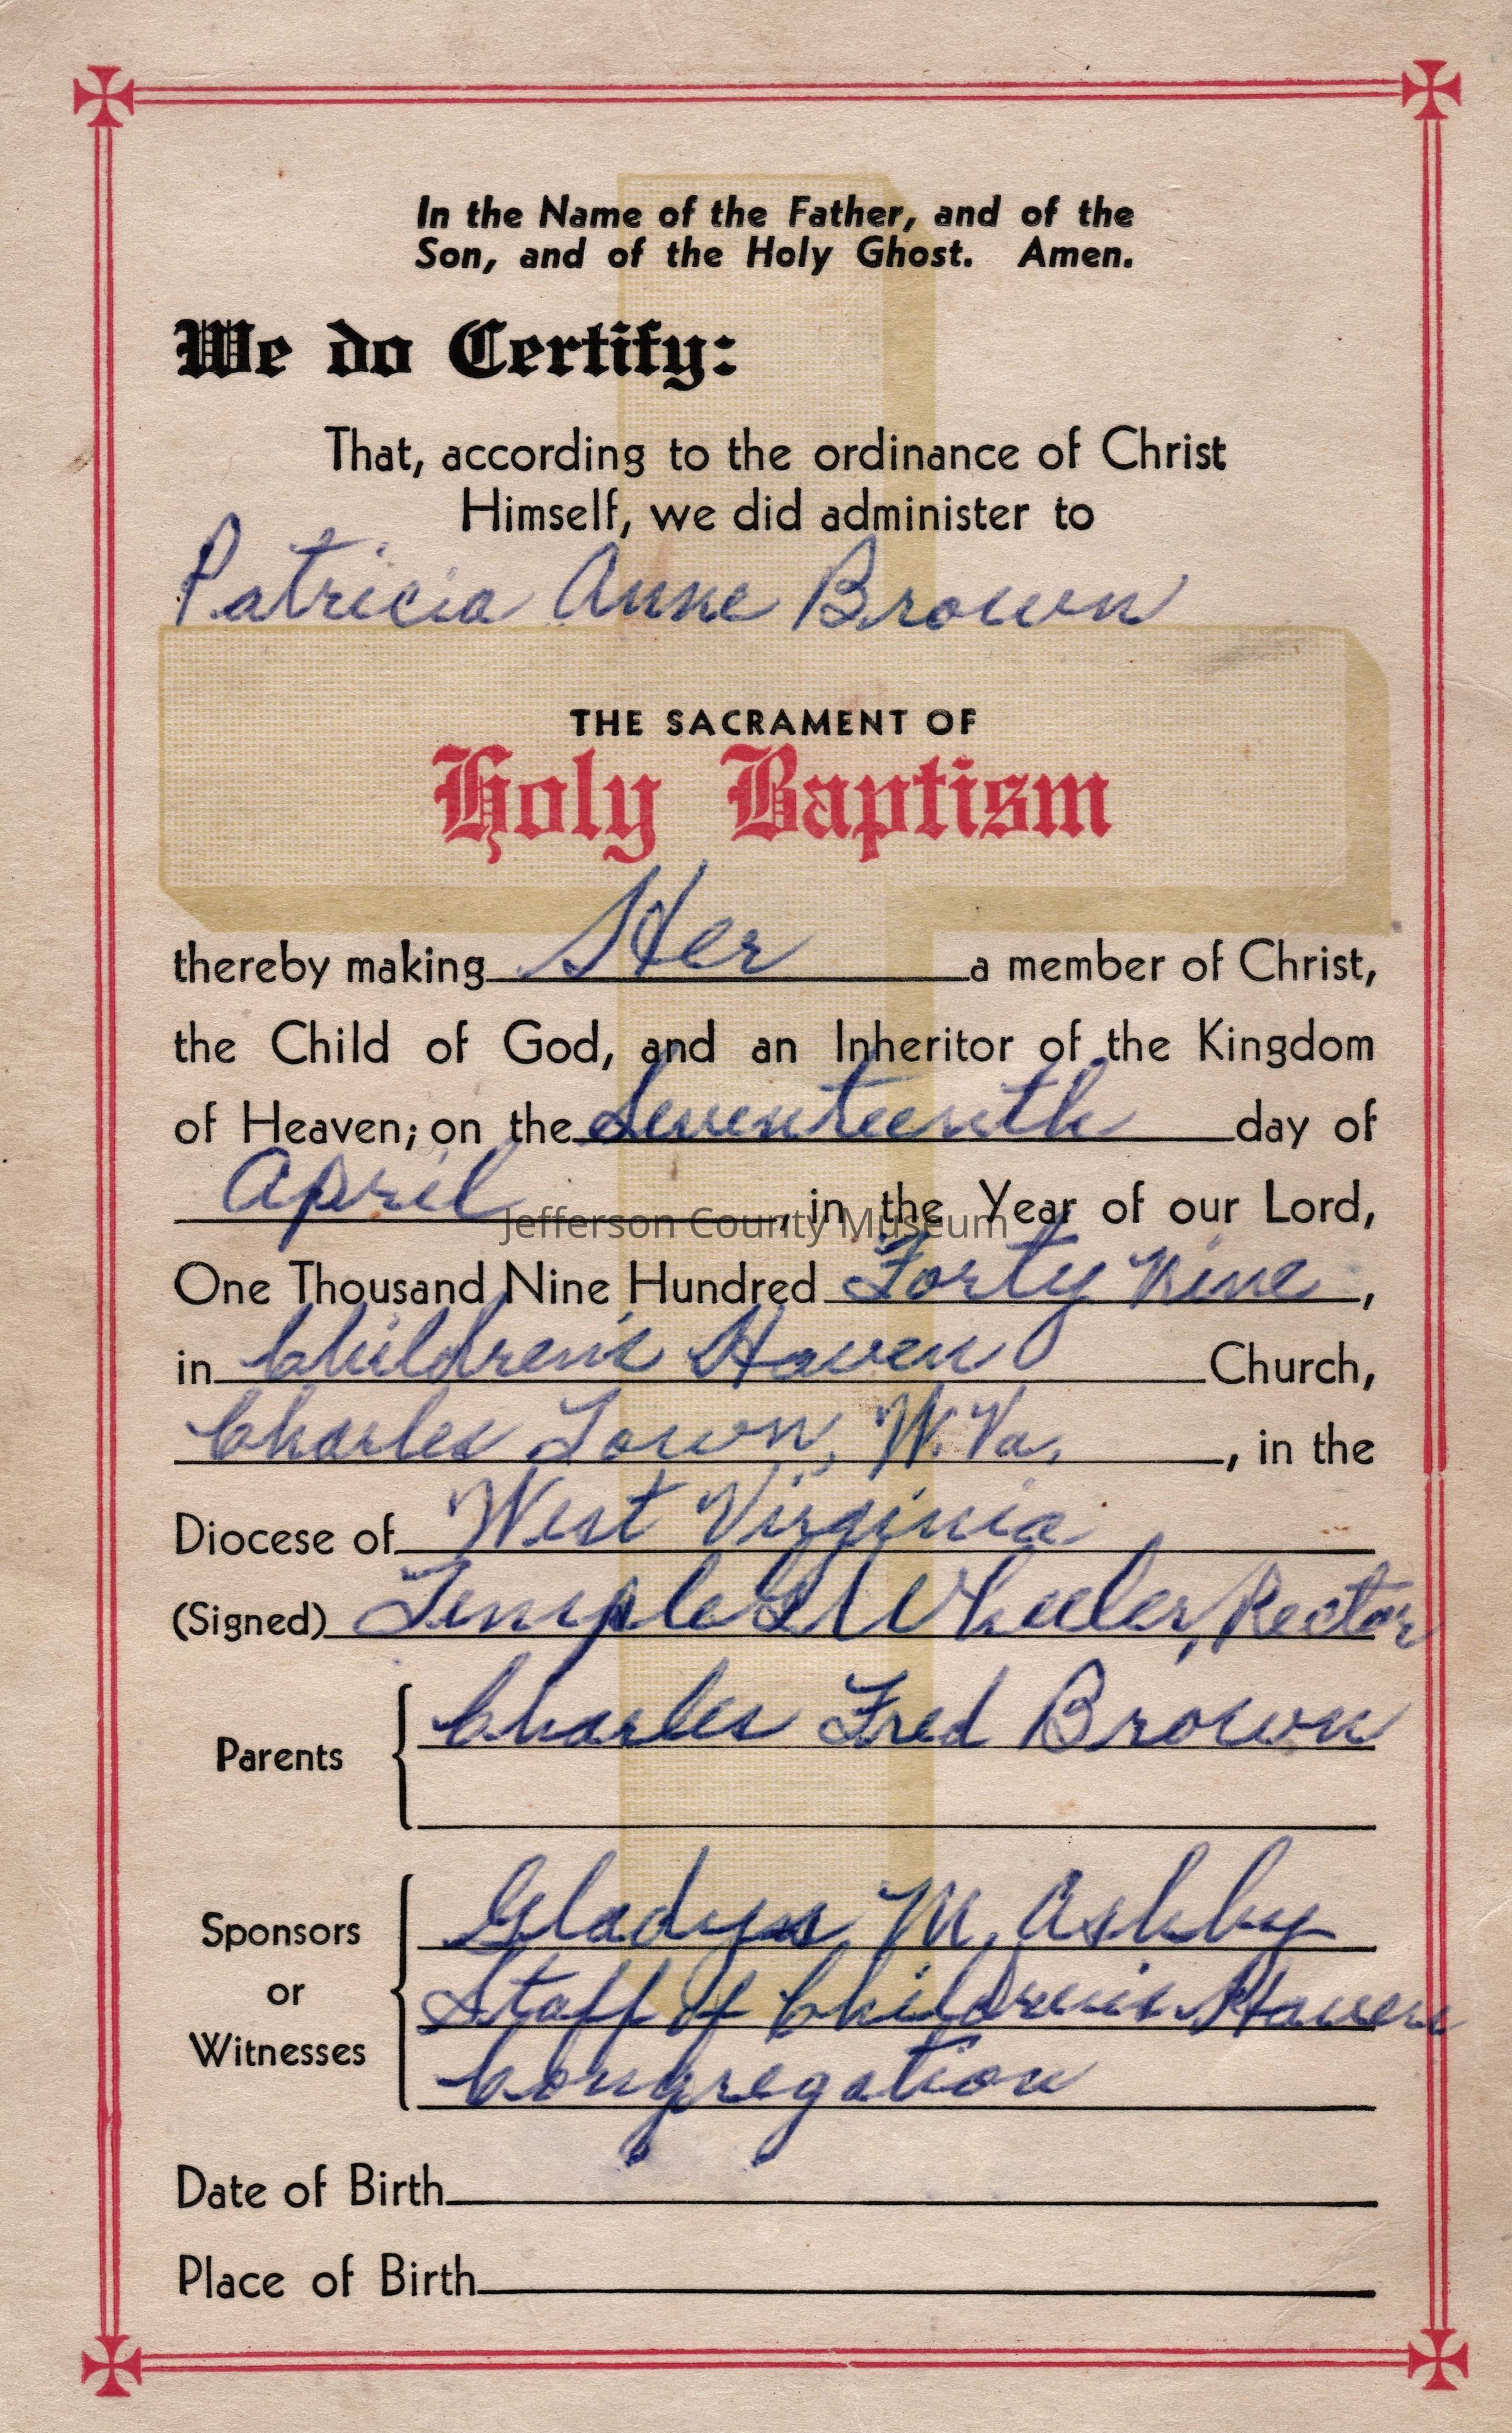 In the Name of the Father, and of the
Son, and of the Holy Ghost. Amen.
We do Certify:
That, according to the ordinance of Christ
Himself, we did administer to
Patricia Anne Brown
THE SACRAMENT OF
Holy Baptism
thereby making Her a member of Christ,
the Child of God, and an Inheritor of the Kingdom
of Heaven; on the Seventeenth day of
April, in the Year of our Lord,
Jefferson County Museum
One Thousand Nine Hundred Forty Nine,
in Children's Haven Church,
Charles Town, W. Va., in the
Diocese of West Virginia
(Signed) Temple G Wheeler, Rector
Parents Charles Fred Brown
Sponsors or Witnesses Gladys M. Ashby
Staff of Children's Haven
Congregation
Date of Birth
Place of Birth